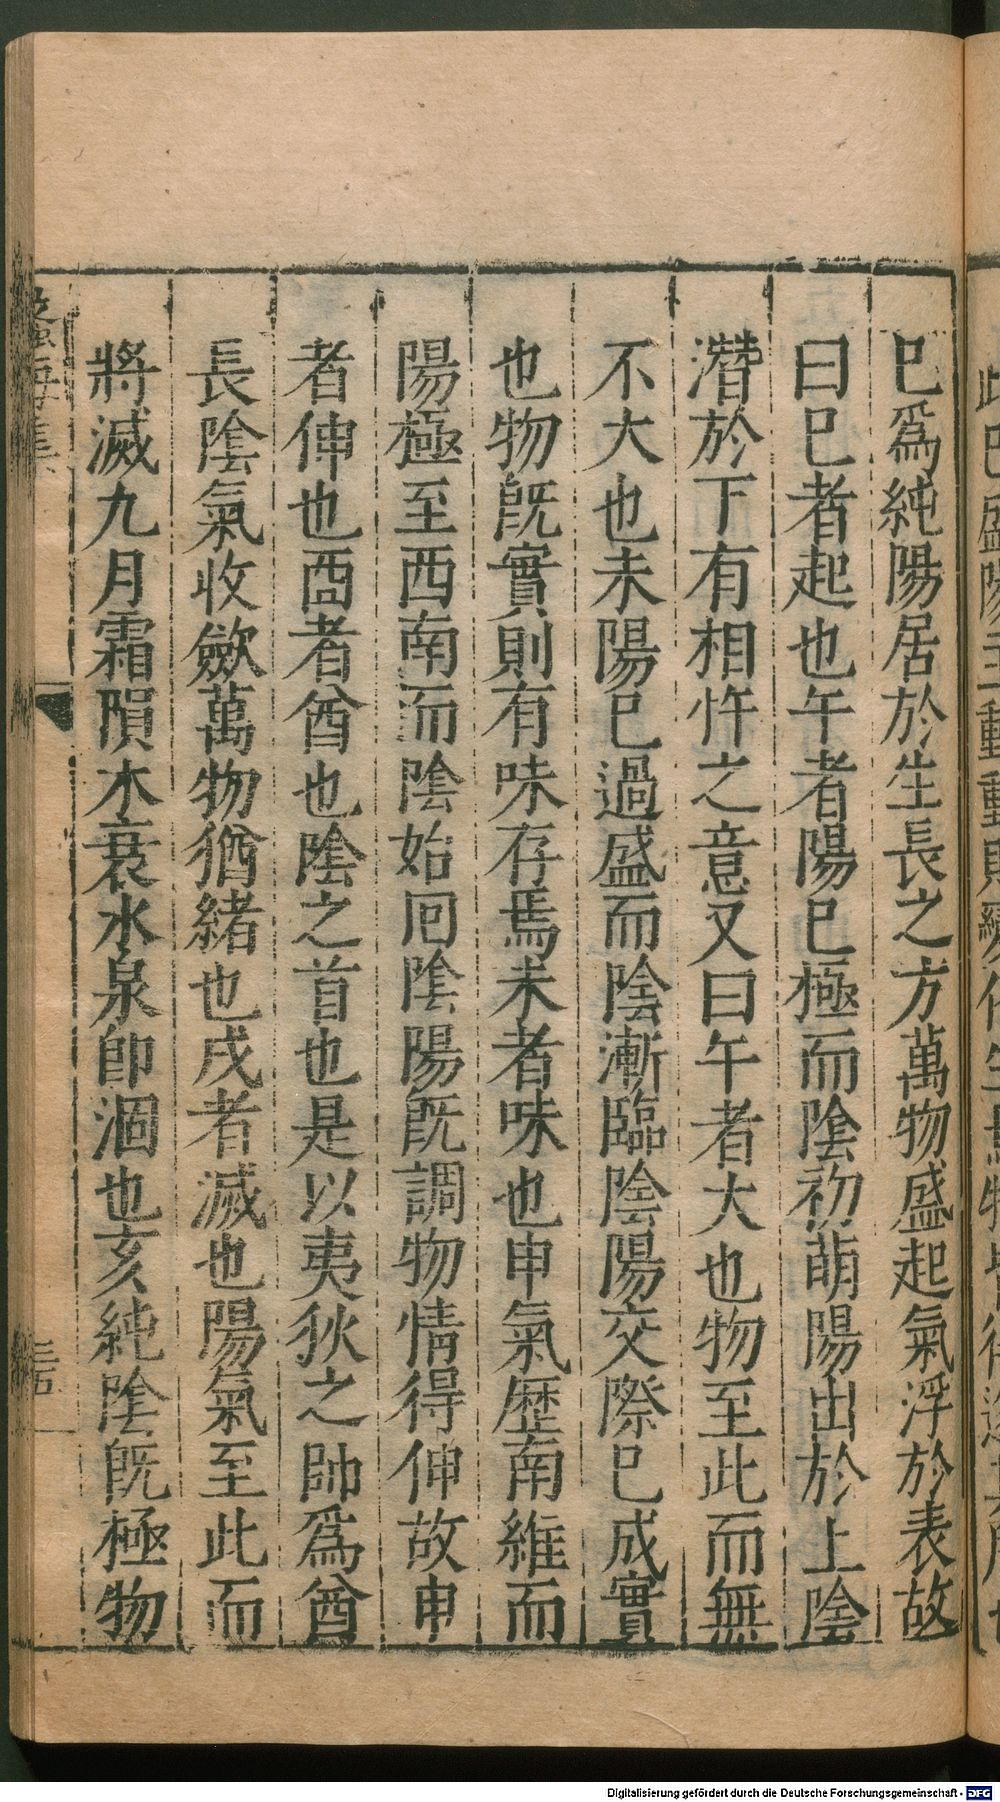 巳爲純陽居於生長之方萬物盛起氣浮於表故
曰巳者起也午者陽巳極而陰初萌陽出於上陰
潛於下有相忤之意又曰午者大也物至此而無
不大也未陽巳過盛而陰漸臨陰陽交際巳成實
也物旣實則有味存焉未者味也申氣歷南維而
陽極至西南而陰始囘陰陽旣調物情得伸故申
者伸也酉者酋也陰之首也是以夷狄之帥爲酋
長陰氣收歛萬物猶緒也戌者滅也陽氣至此而
將滅九月霜隕木衰水泉卽涸也亥純陰旣極物
三五
Digitalisierung gefördert durch die Deutsche Forschungsgemeinschaft - DFG